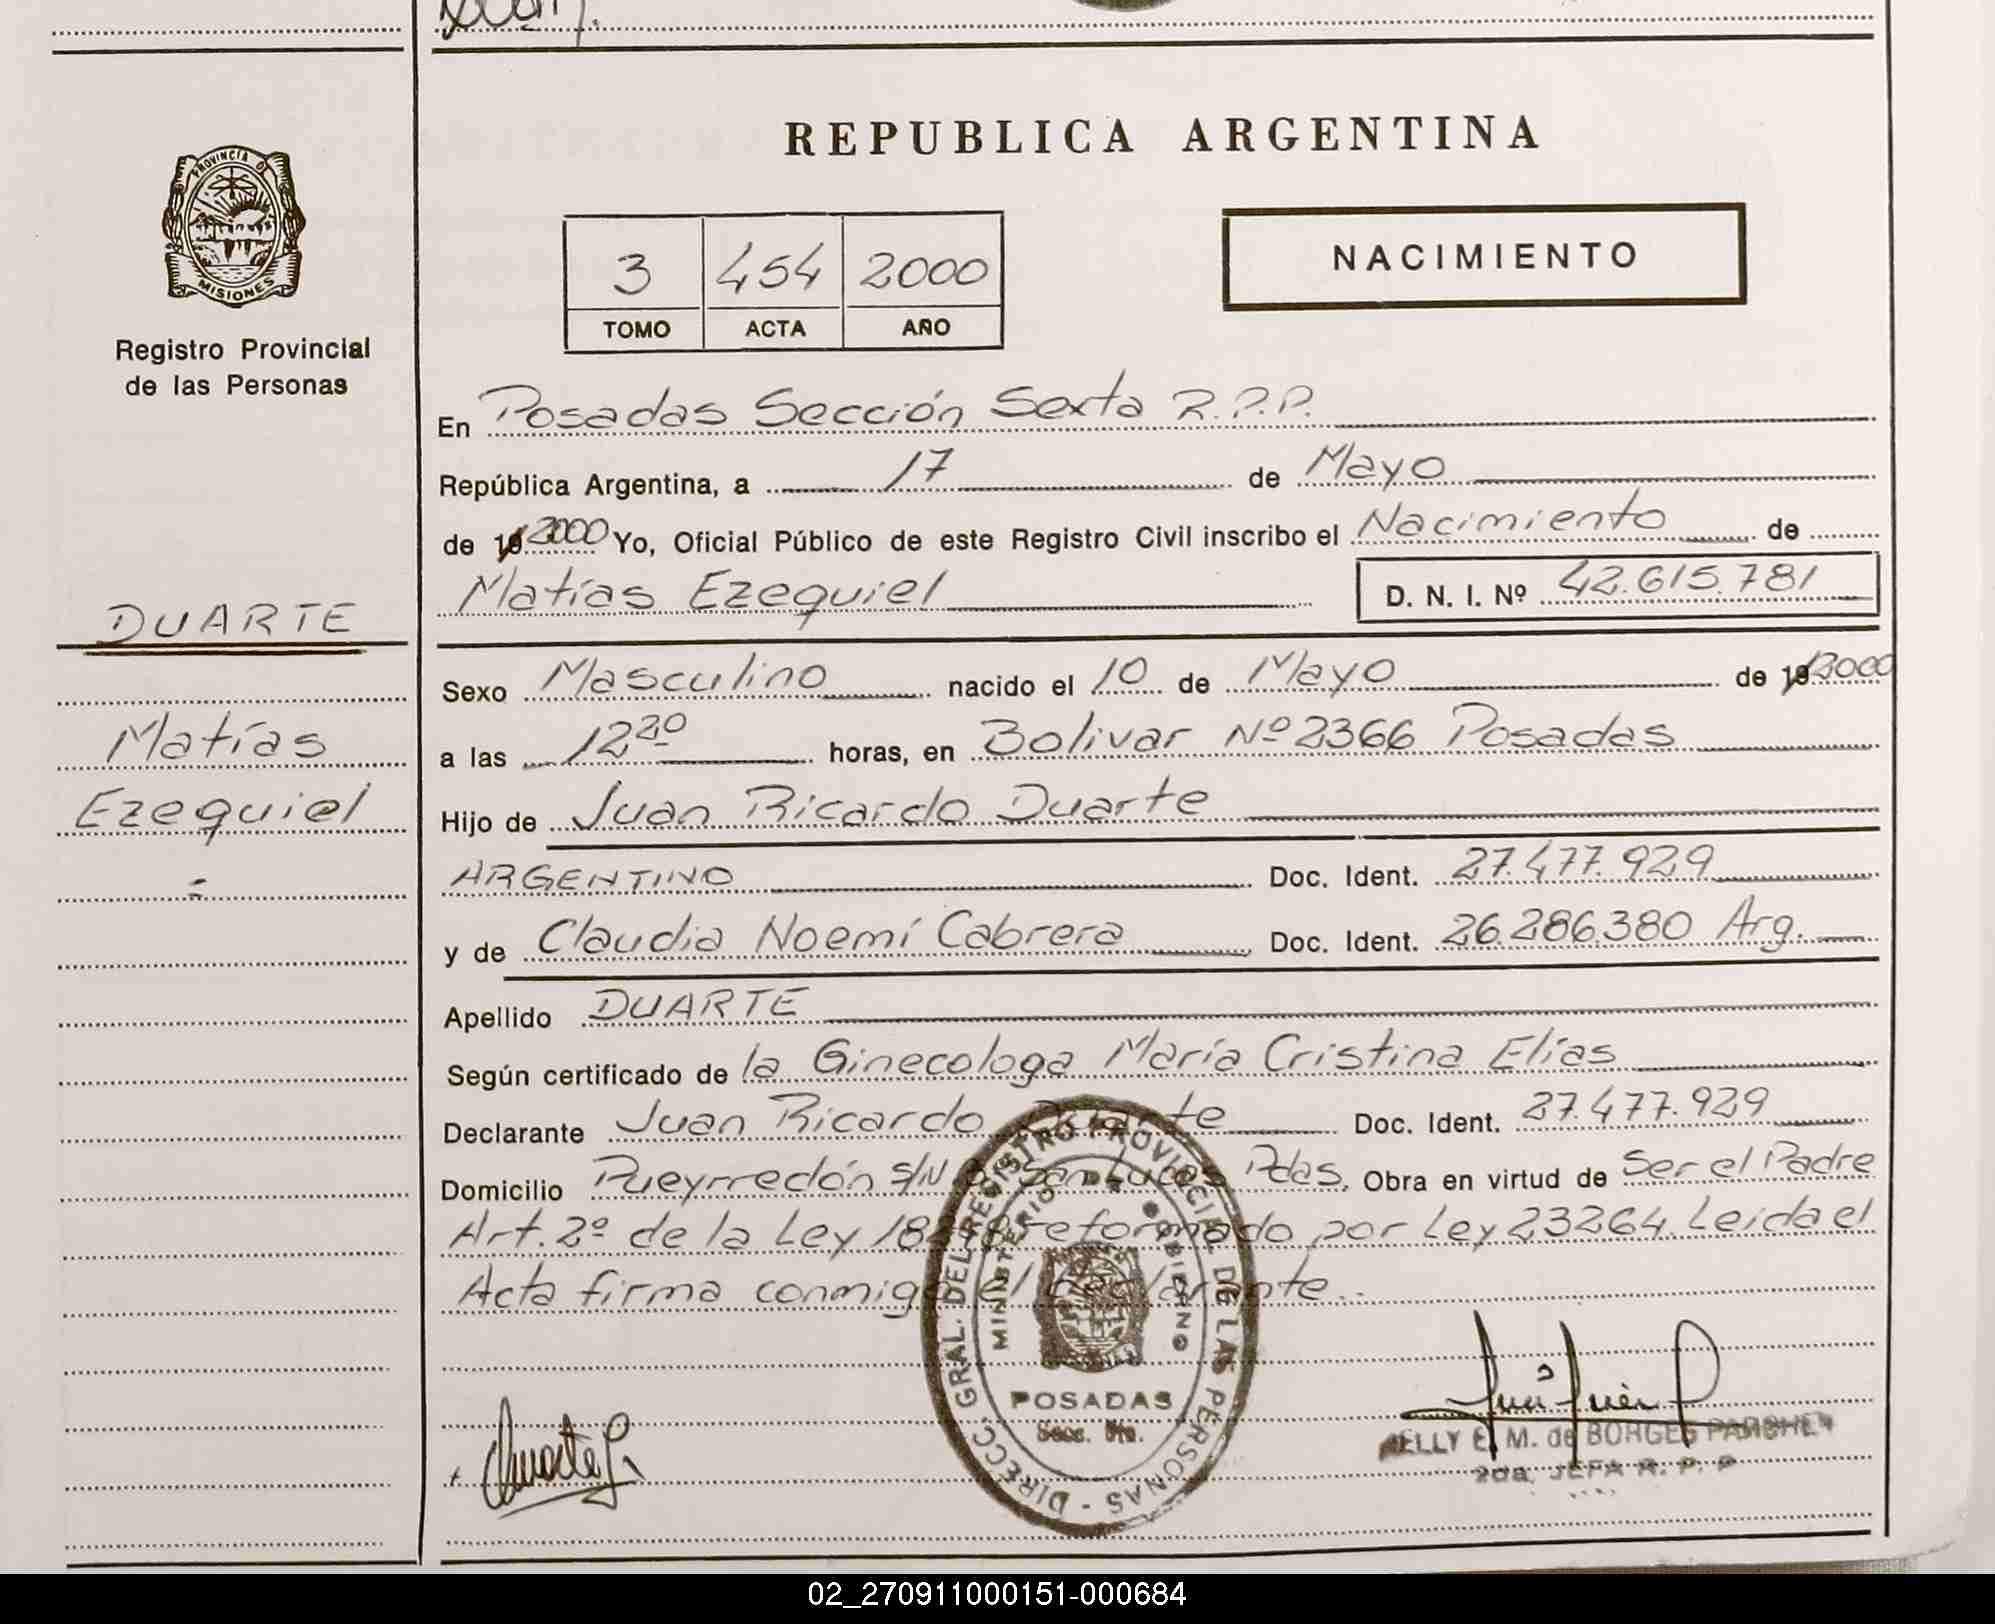 REPUBLICA ARGENTINA
PROVINCIA DE
MISIONES
Registro Provincial
de las Personas
3 454 2000
TOMO ACTA AÑO
NACIMIENTO
En Posadas Sección Sexta R.P.P.
República Argentina, a 17 de Mayo
de 19 2000 Yo, Oficial Público de este Registro Civil inscribo el Nacimiento de
Matías Ezequiel D. N. I. Nº 42.615.781
DUARTE
Matías
Ezequiel
Sexo Masculino nacido el 10 de Mayo de 19 2000
a las 12 20 horas, en Bolivar Nº 2366 Posadas
Hijo de Juan Ricardo Duarte
ARGENTINO Doc. Ident. 27.477.929
y de Claudia Noemí Cabrera Doc. Ident. 26.286.380 Arg.
Apellido DUARTE
Según certificado de la Ginecologa María Cristina Elías
Declarante Juan Ricardo Duarte Doc. Ident. 27.477.929
Domicilio Pueyrredón S/N Bº San Lucas Pdas. Obra en virtud de Ser el Padre
Art. 2º de la Ley 18248 reformado por Ley 23264. Leida el
Acta firma conmigo el declarante..
DIRECC. GRAL. DEL REGISTRO PROVINCIAL DE LAS PERSONAS
MINISTERIO GOBIERNO
MISIONES
POSADAS
Secc. 6ta.
Duarte J.
E. M. de BORGES
2da. JEFA R. P. P
02_270911000151-000684